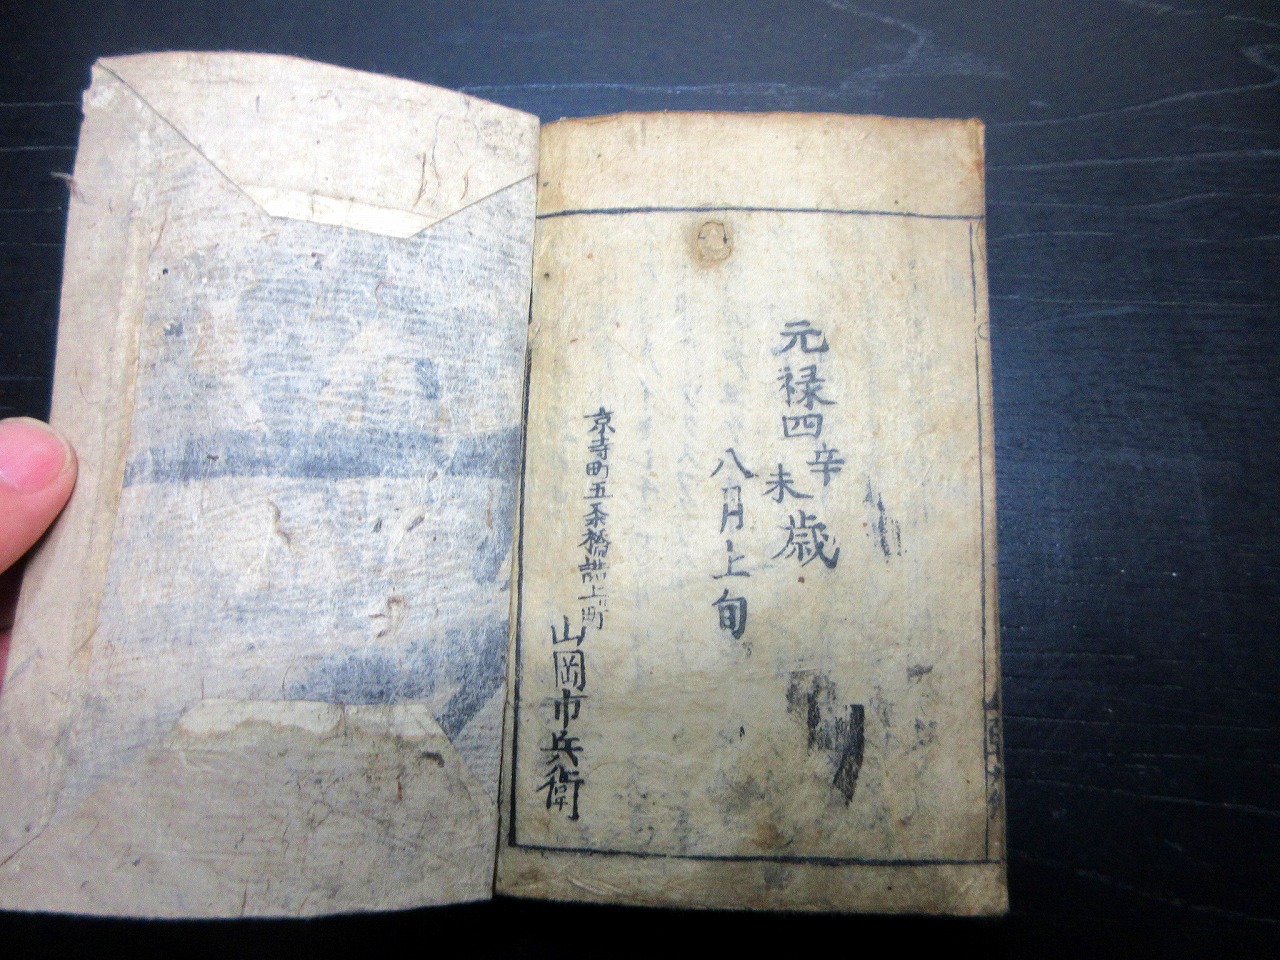 元禄四辛未歳
八月上旬
京寺町五条橋詰上町
山岡市兵衛